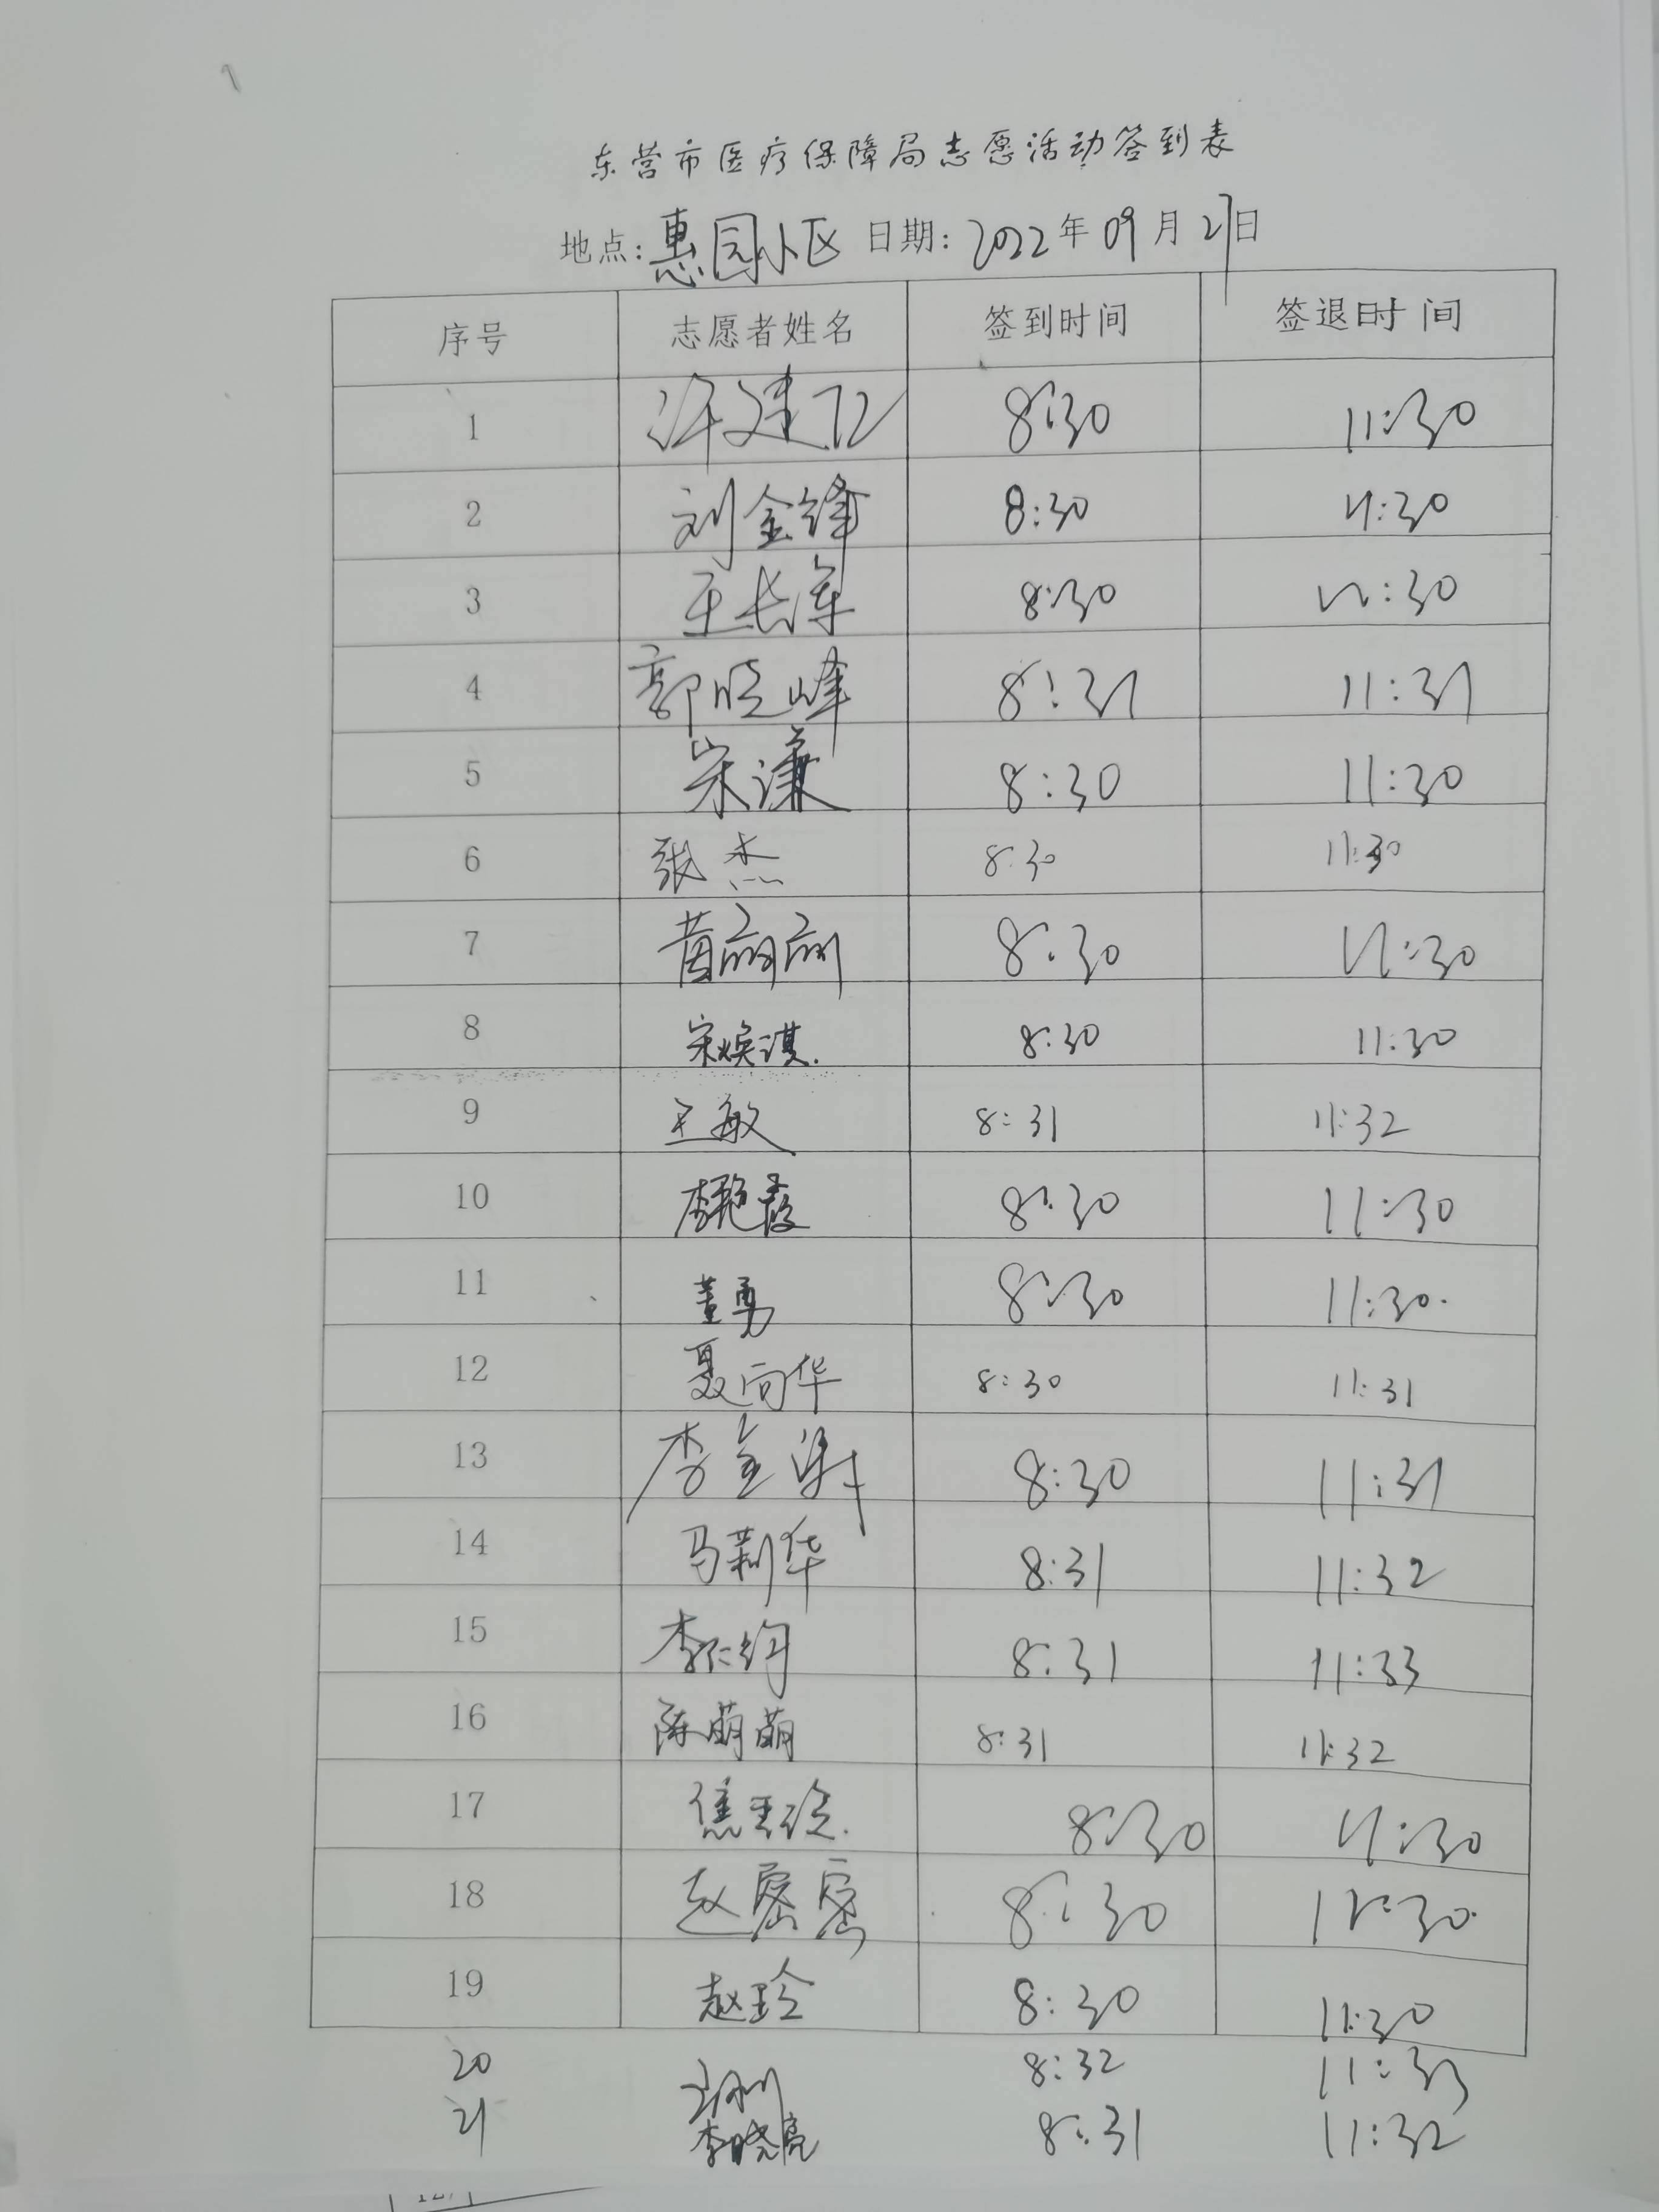 东营市医疗保障局志愿活动签到表
地点:惠园小区 日期:2022年09月27日
序号 志愿者姓名 签到时间 签退时间
1 8:30 11:30
2 刘金锋 8:30 11:30
3 王长军 8:30 11:30
4 郭晓峰 8:31 11:31
5 宋谦 8:30 11:30
6 张杰 8:30 11:30
7 黄丽丽 8:30 11:30
8 宋焕淇. 8:30 11:30
9 王敏 8:31 11:32
10 李艳霞 8:30 11:30
11 董勇 8:30 11:30.
12 聂向华 8:30 11:31
13 8:30 11:31
14 马莉华 8:31 11:32
15 8:31 11:33
16 陈萌萌 8:31 11:32
17 8:30 11:30
18 赵密密 8:30 11:30.
19 赵玲 8:30 11:30
20 8:32 11:33
21 李晓亮 8:31 11:32